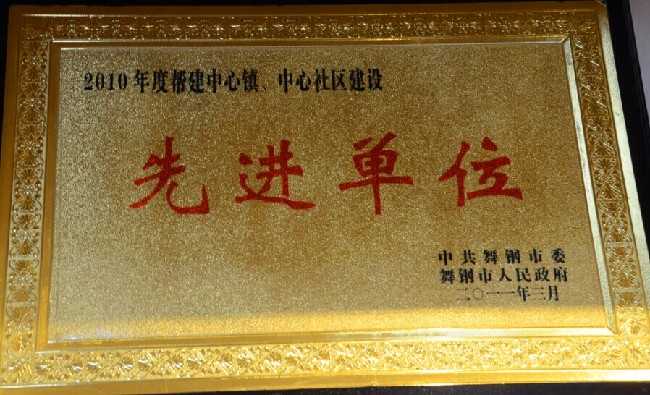 2010年度帮建中心镇、中心社区建设
先进单位
中共舞钢市委
舞钢市人民政府
二〇一一年三月